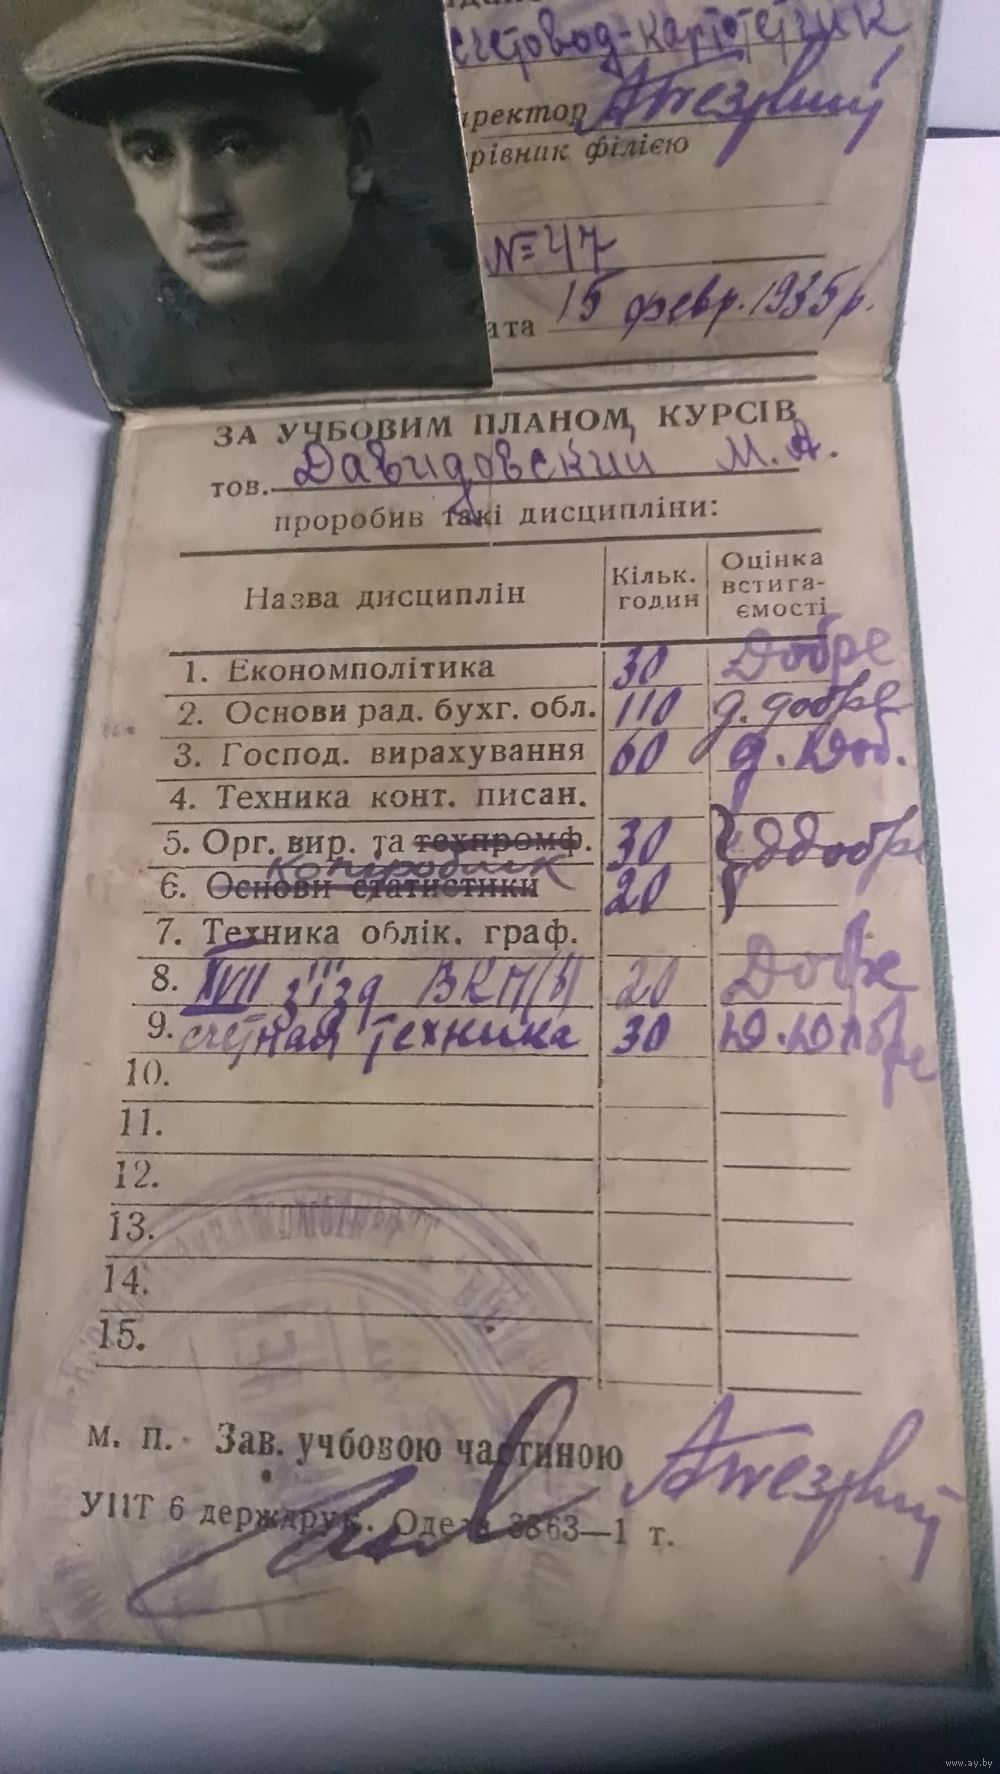 счетовод-картотетчик
ректор
рівник філією
№ 47
ата 15 февр. 1935 р.
ЗА УЧБОВИМ ПЛАНОМ КУРСІВ
тов. Давидовский М. А.
проробив такі дисципліни:
Назва дисциплін Кільк. годин Оцінка встига-ємості
1. Економполітика 30 Добре
2. Основи рад. бухг. обл. 110 д. добре
3. Господ. вирахування 60 д. Доб.
4. Техника конт. писан.
5. Орг. вир. та техпромф. 30 д добр
6. Основи статистики 20
7. Техника облік. граф.
8. XVII з'їзд ВКП/б/ 20 Добре
9. счетная техника 30 Д. Добре
10.
11.
12.
13.
14.
15.
м. п. Зав. учбовою частиною
УПТ 6 держдрук. Одеса 3363—1 т.
www.ay.by